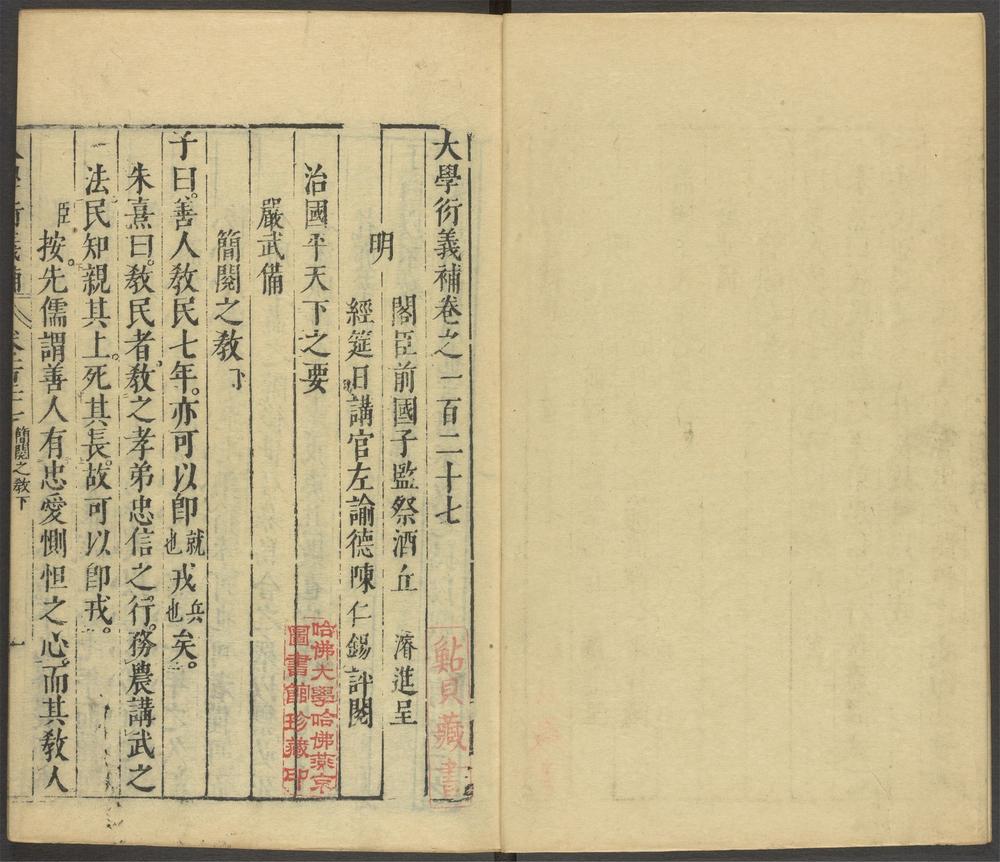 大學衍義補卷之一百二十七
明
閣臣前國子監祭酒丘 濬進呈
經筵日講官左諭德陳仁錫評閱
治國平天下之要
嚴武備
簡閱之敎下
子曰。善人敎民七年。亦可以卽就也戎兵也矣。
朱熹曰。敎民者。敎之孝弟忠信之行。務農講武之
法民知親其上。死其長。故可以卽戎。
臣按。先儒謂善人有忠愛惻怛之心。而其敎人
簡閱之敎下
一
鮎貝藏書
哈佛大學哈佛燕京
圖書館珍藏印